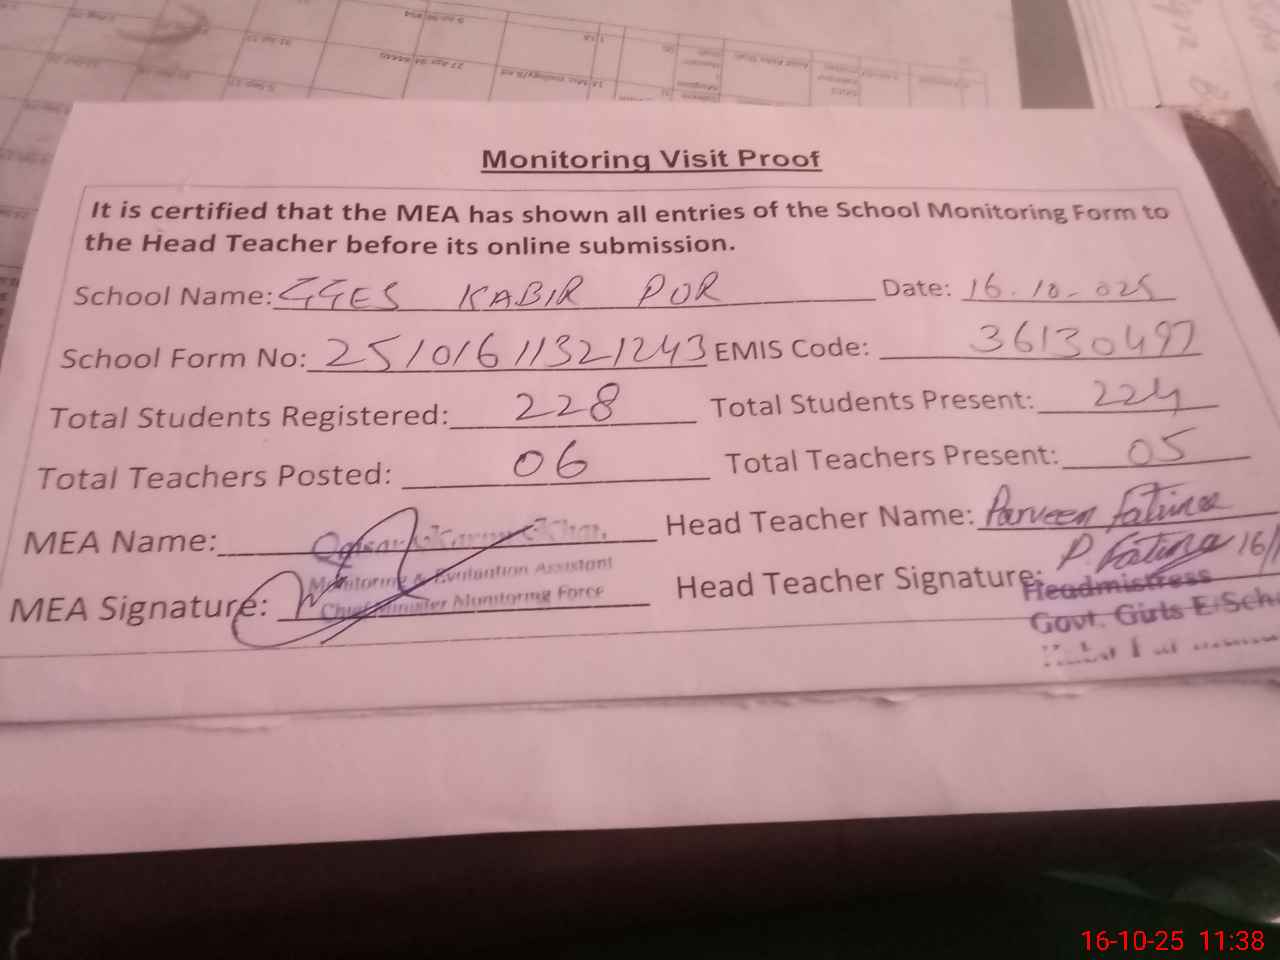 Monitoring Visit Proof
It is certified that the MEA has shown all entries of the School Monitoring Form to
the Head Teacher before its online submission.
School Name: GGES KABIR POR Date: 16.10.025
School Form No: 25101611321243 EMIS Code: 36130497
Total Students Registered: 228 Total Students Present: 224
Total Teachers Posted: 06 Total Teachers Present: 05
MEA Name: Head Teacher Name: Parveen Fatima
Monitoring & Evaluation Assistant
MEA Signature: Chief Minister Monitoring Force Head Teacher Signature: P. Fatima 16/
Headmistress
Govt. Girls E/Sch
16-10-25 11:38